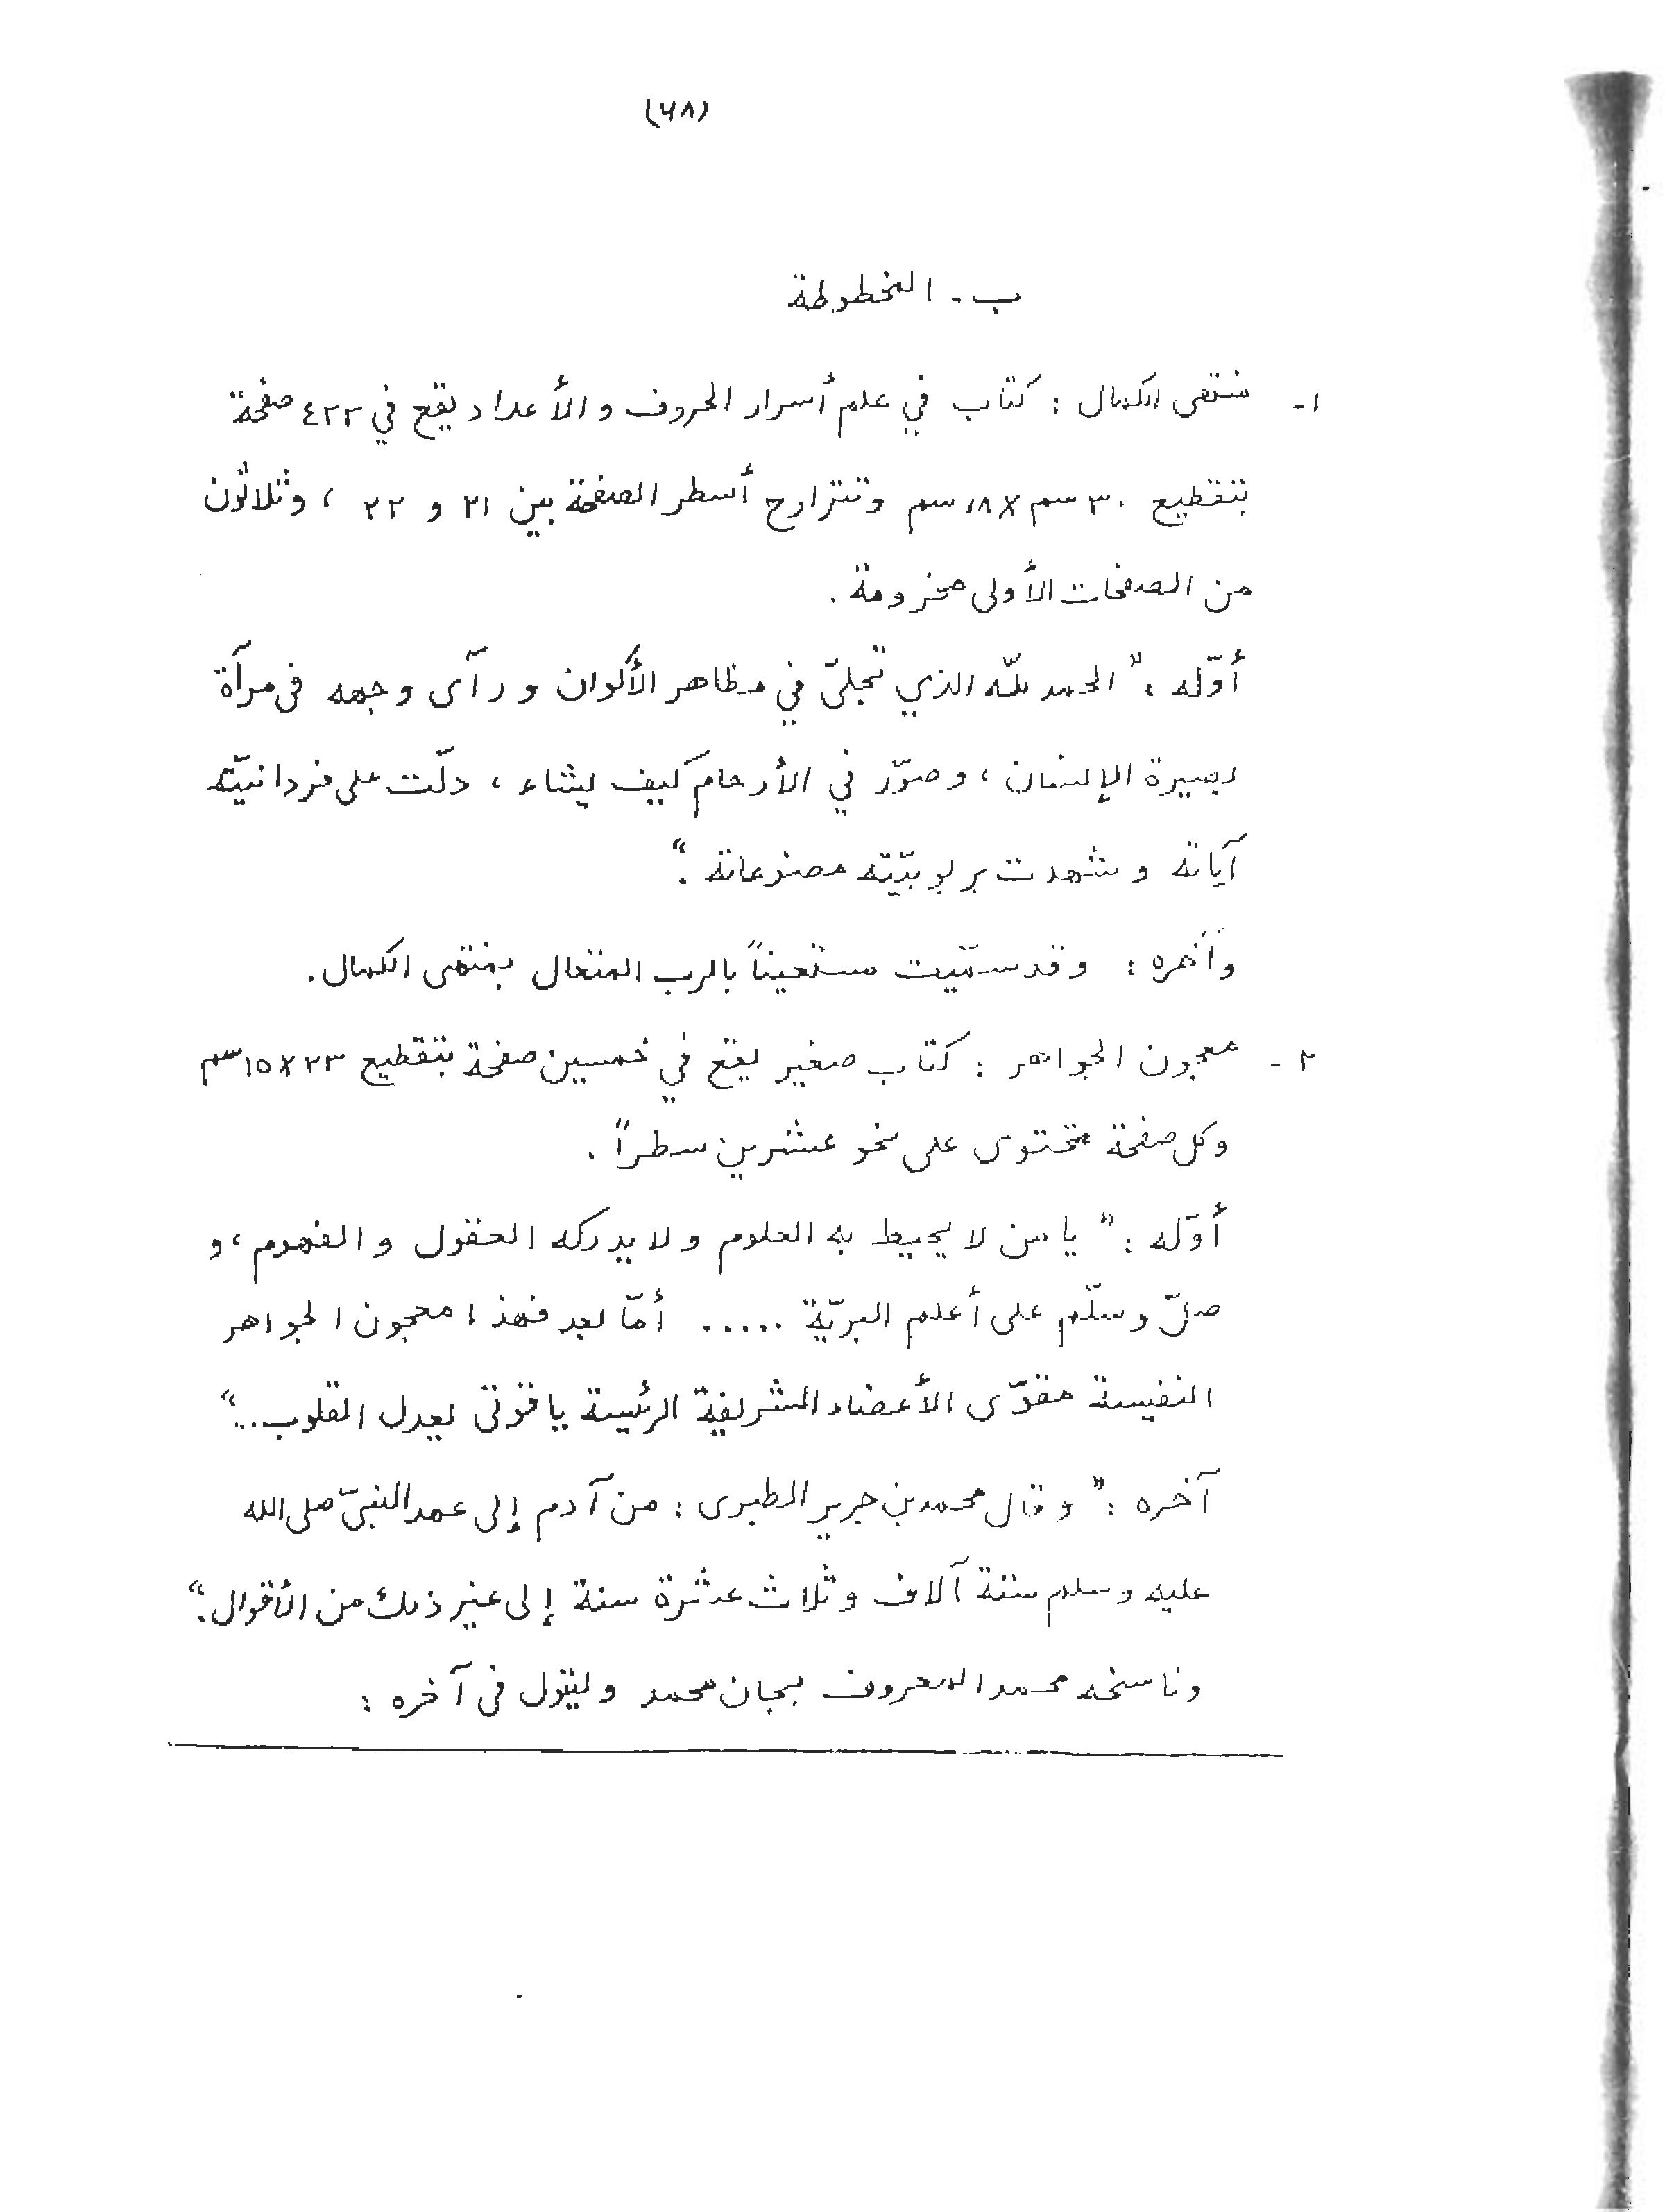 (٦٨)
ب - المخطوطة
١- منتهى الكمال : كتاب في علم أسرار الحروف والأعداد يقع في ٤٢٢ صفحة
بتقطيع ٣٠ سم X ١٨ سم وتتراوح أسطر الصفحة بين ٢١ و ٢٢ ، وثلاثون
من الصفحات الأولى مخرومة .
أوّله : " الحمد للّه الذي تجلىّ في مظاهر الأكوان و رآى وجهه فى مرآة
بصيرة الإنسان ، وصوّر في الأرحام كيف يشاء ، دلّت على فردانيّته
آياته وشهدت بربوبيّته مصنوعاته ."
وآخره : وقد سمّيت مستعيناً بالرب المتعال بمنتهى الكمال .
٢- معجون الجواهر : كتاب صغير يقع في خمسين صفحة بتقطيع ٢٣ X ١٥ سم
وكل صفحة تحتوى على نحو عشرين سطراً .
أوّله : " يا من لا يحيط به العلوم ولا يدركه العقول والفهوم ، و
صلّ وسلّم على أعلم البريّة ..... أمّا بعد فهذا معجون الجواهر
النفيسة مقوّى الأعضاء الشريفة الرئيسة ياقوتى يعدل القلوب .."
آخره : " وقال محمد بن جرير الطبرى : من آدم إلى عهد النبىّ صلى الله
عليه وسلم ستة آلاف وثلاث عشرة سنة إلى غير ذلك من الأقوال ."
وناسخه محمد المعروف بجان محمد ويقول فى آخره :